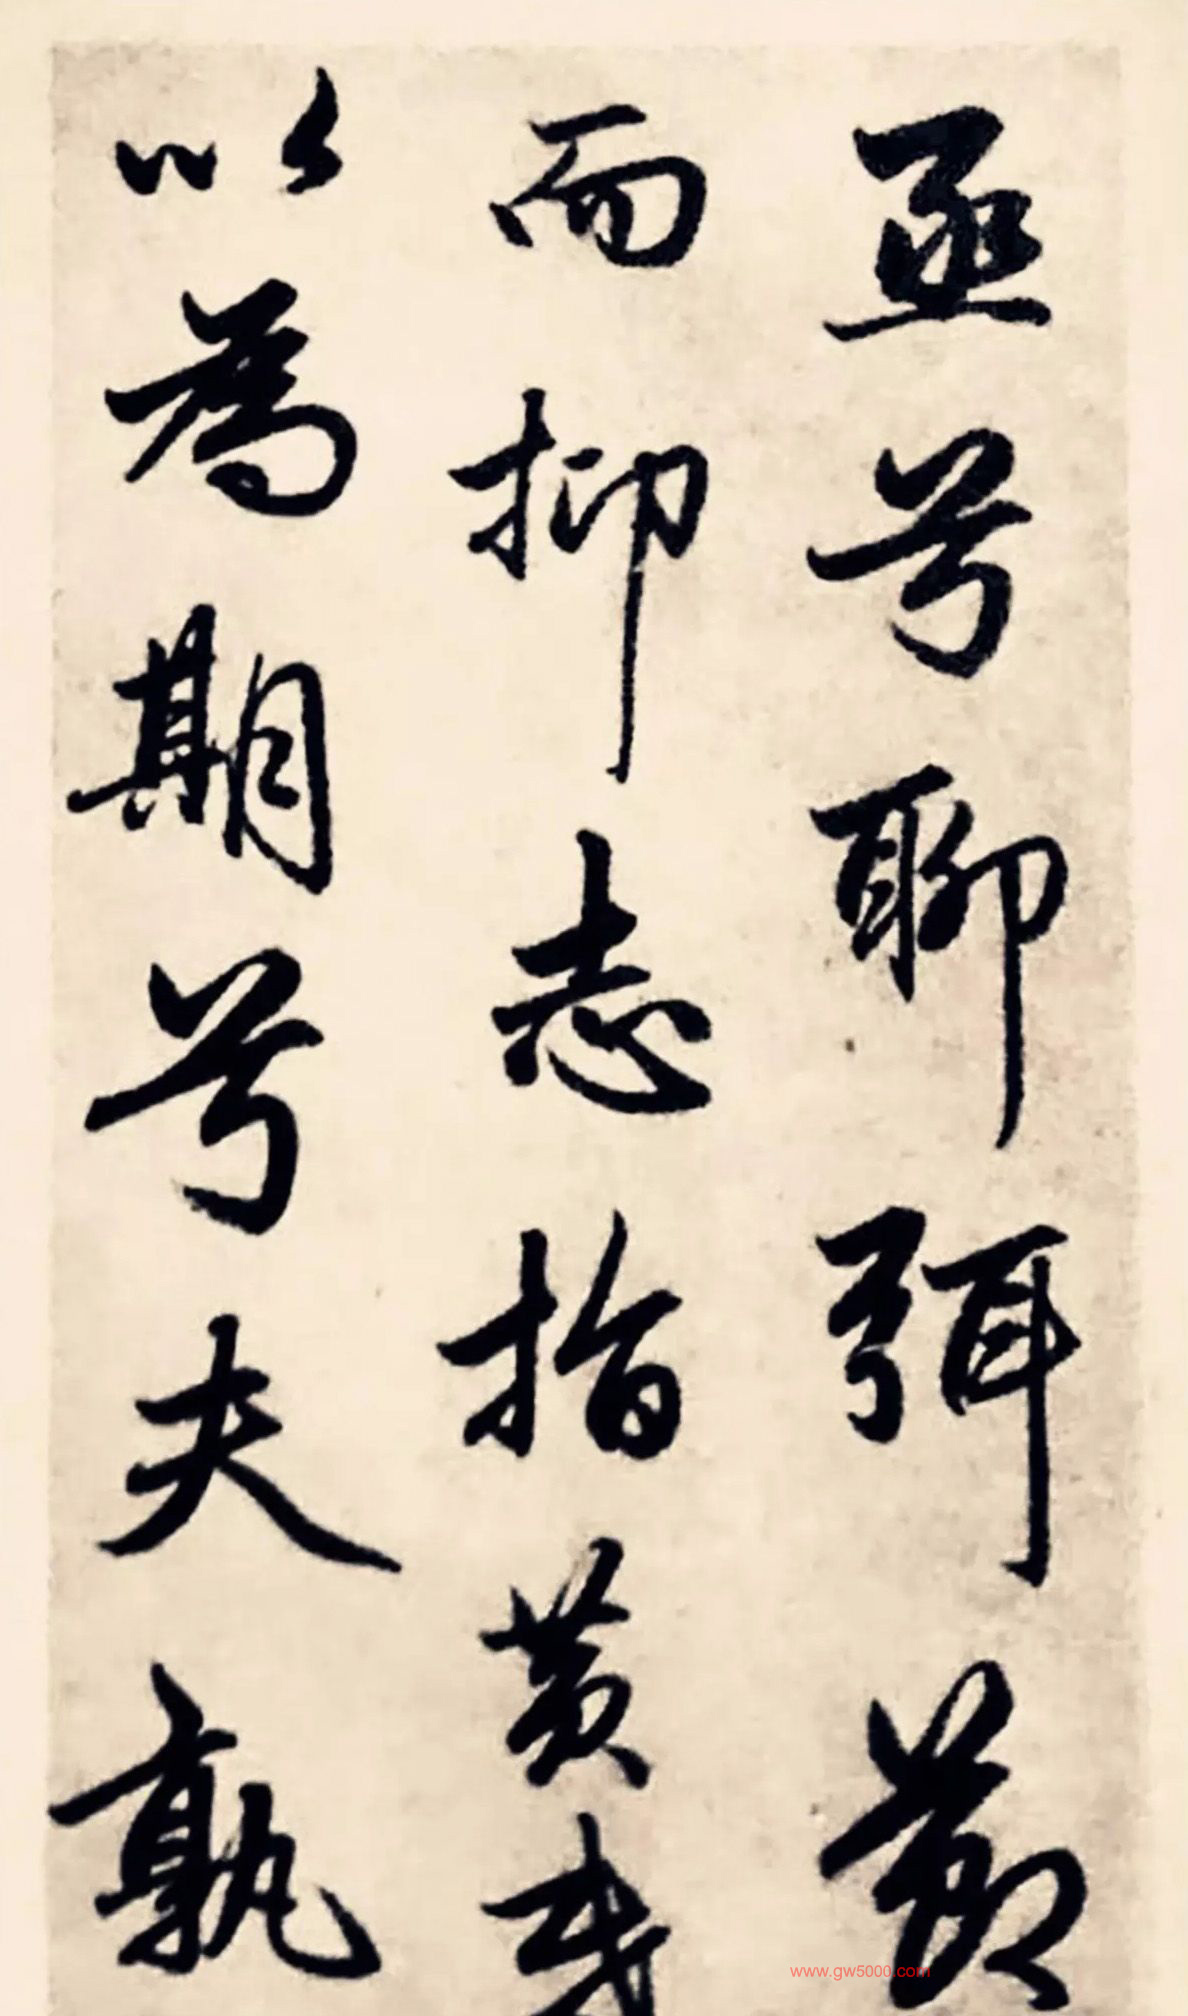 亟兮聊弭節
而抑志指黃
以為期兮夫孰
www.gw5000.com